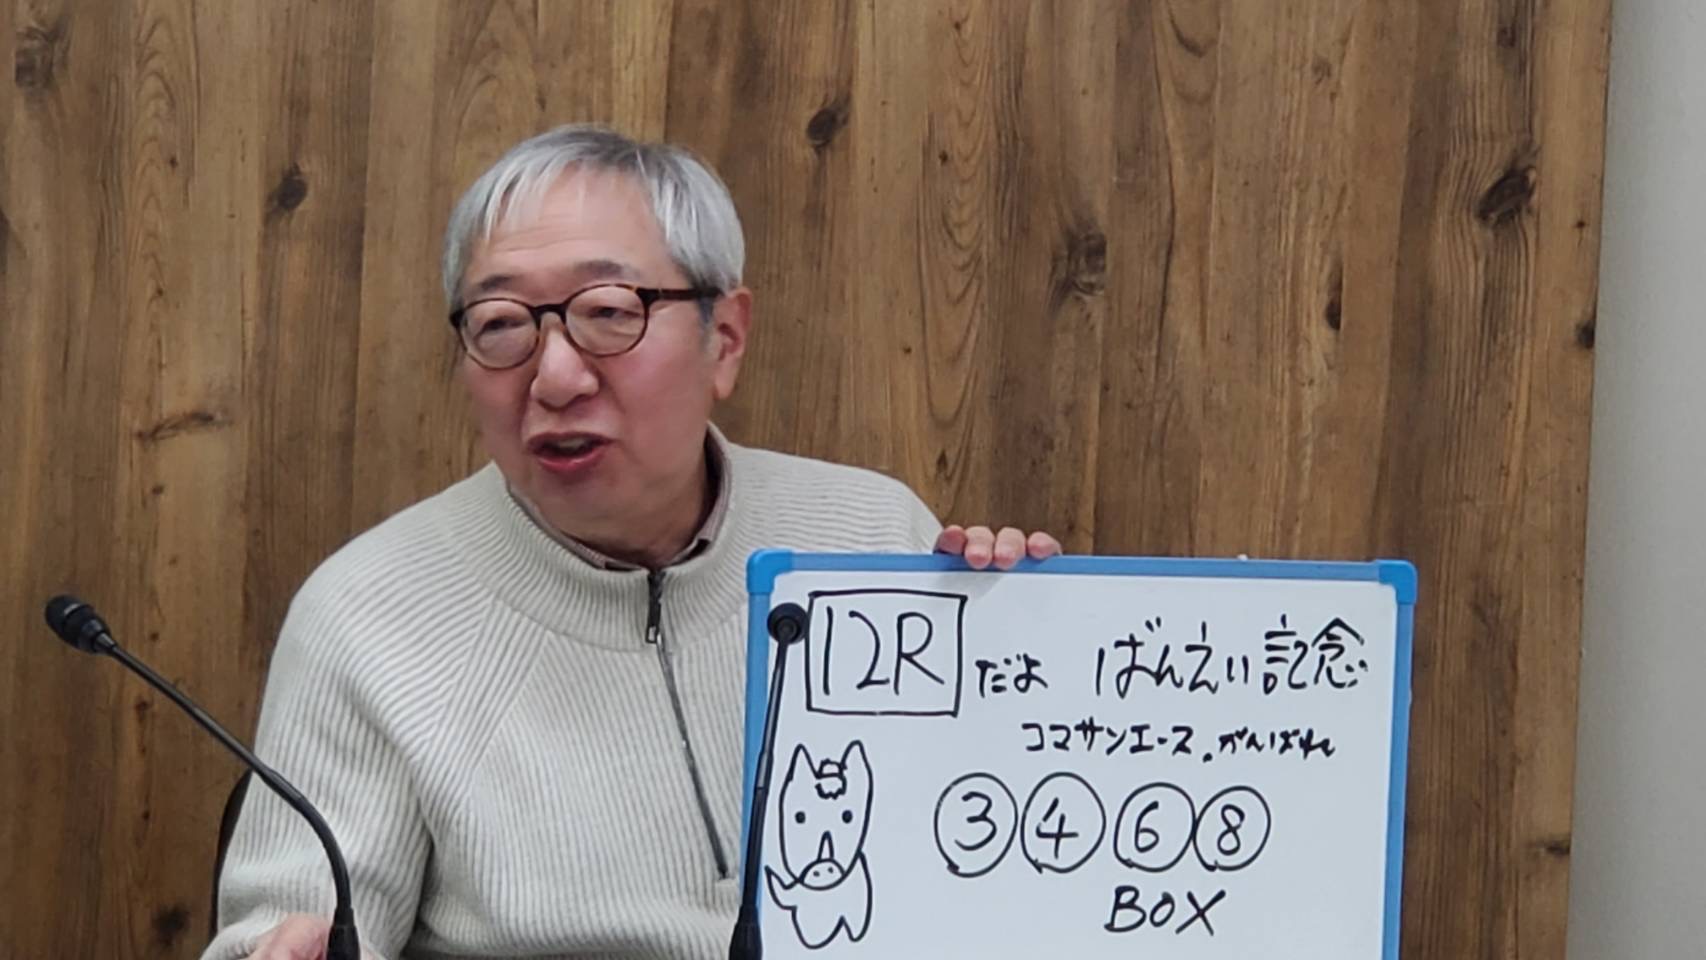 12R だよ ばんえい記念
コマサンエース。がんばれ
③④⑥⑧
BOX